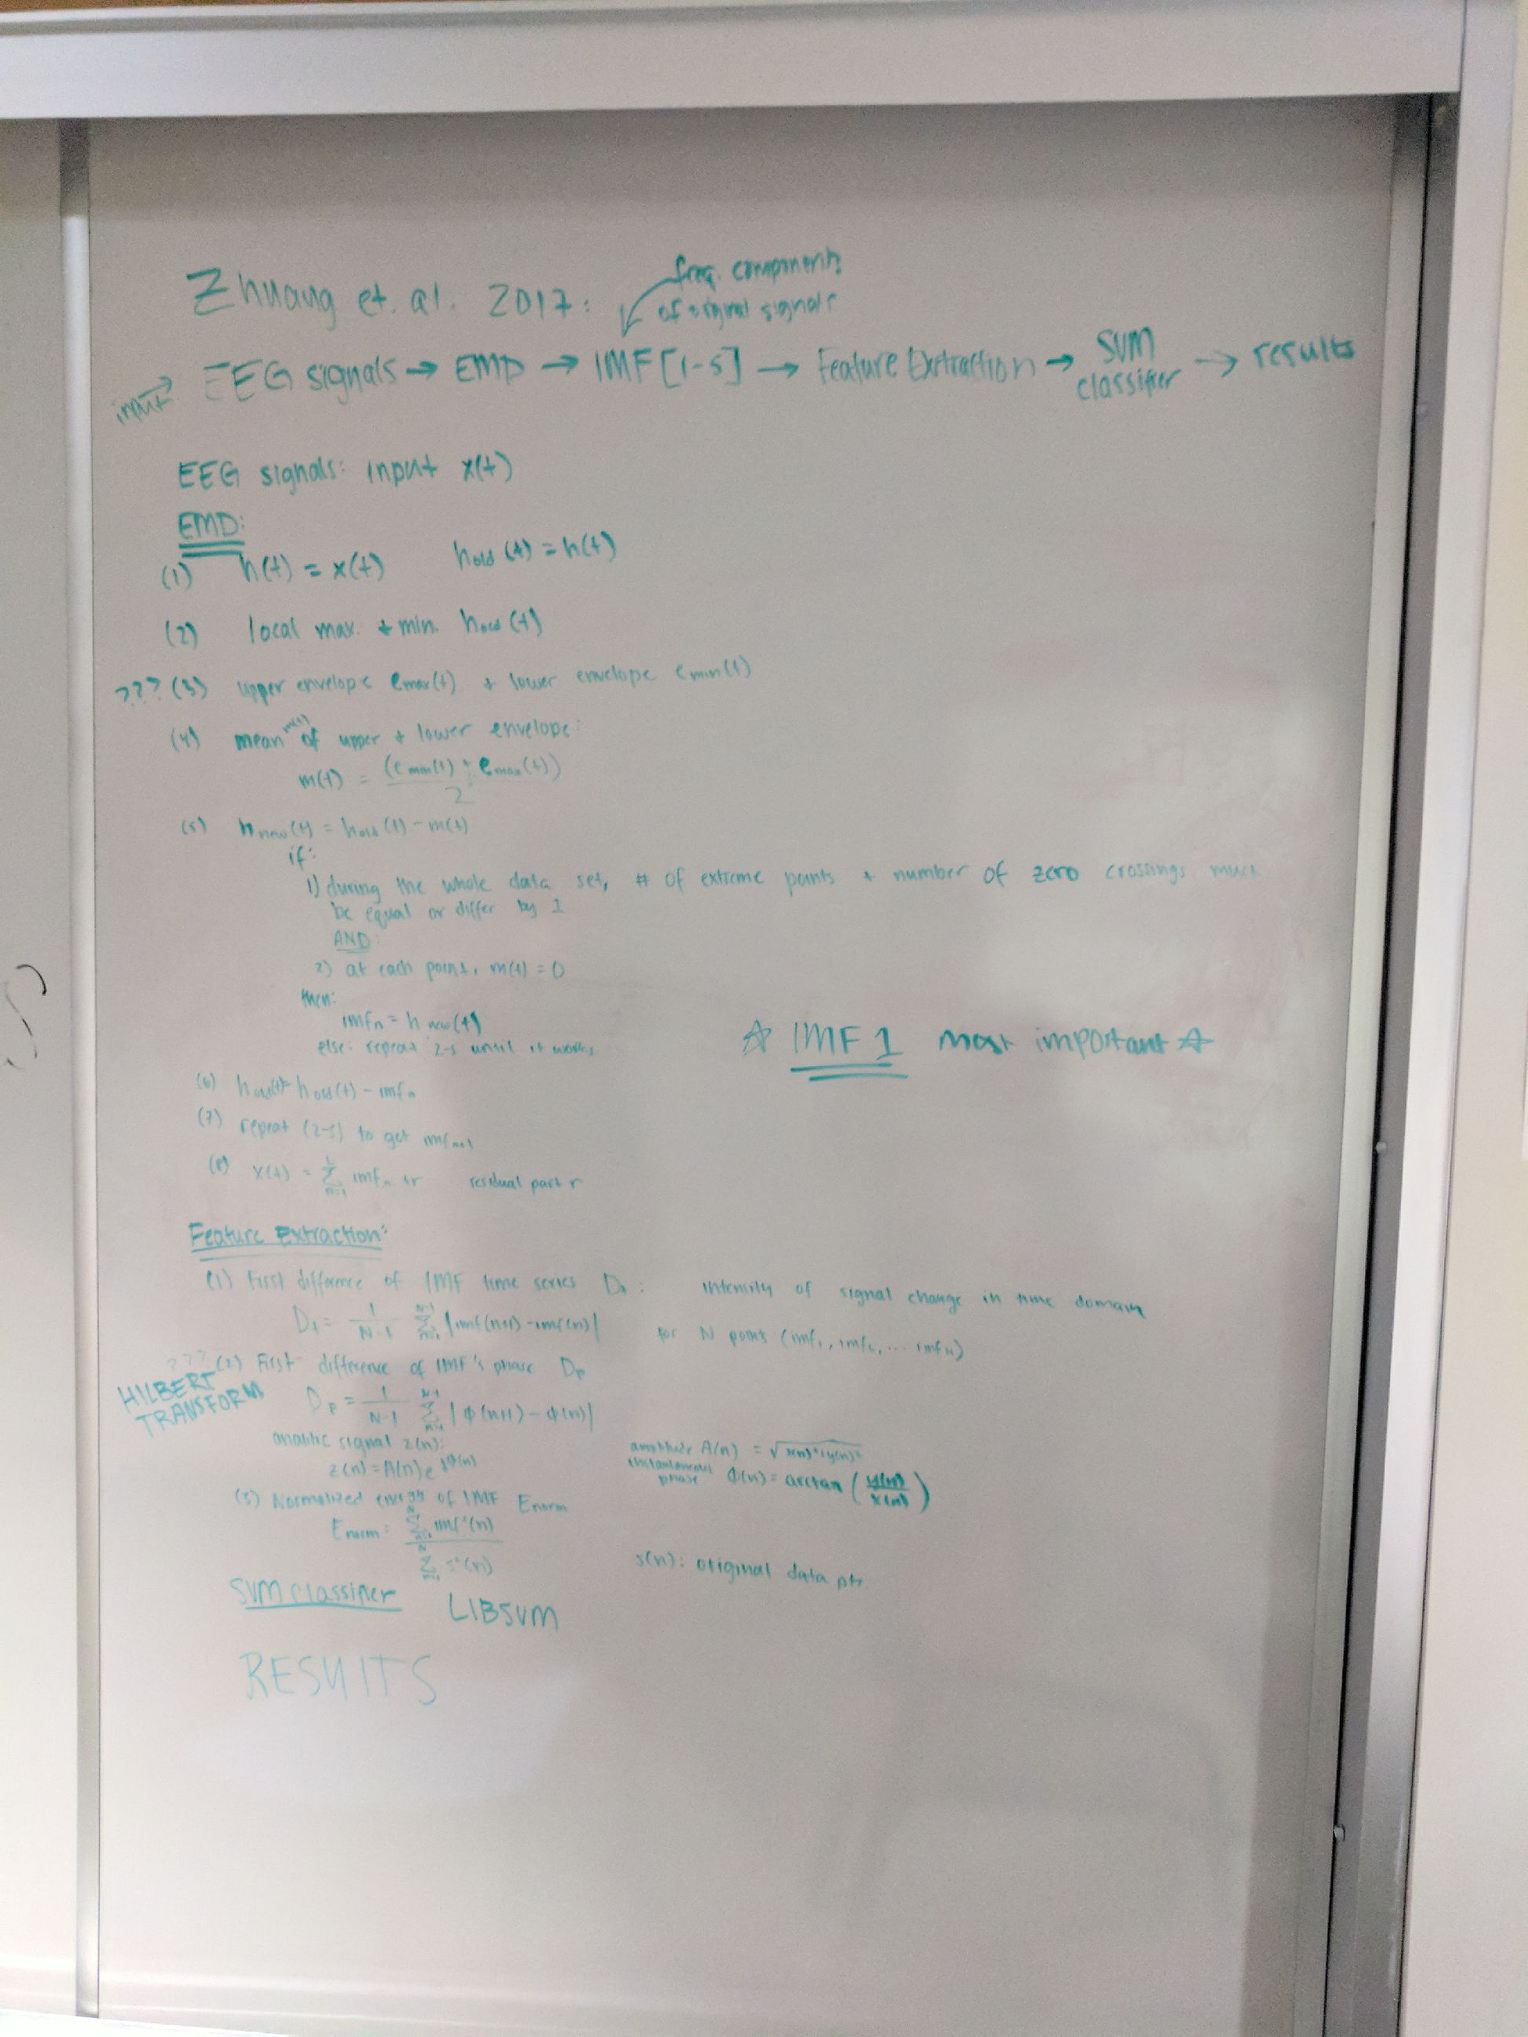 Zhuang et. al. 2017:
freq. components
of original signals
input → EEG signals → EMD → IMF [1-5] → Feature Extraction → SVM classifier → results
EEG signals: input x(t)
EMD:
(1) h(t) = x(t) hold (t) = h(t)
(2) local max. + min. hold (t)
??? (3) upper envelope emax(t) + lower envelope emin(t)
(4) mean m(t) of upper + lower envelope:
m(t) = (emin(t) + emax(t)) / 2
(5) hnew(t) = hold (t) - m(t)
if:
1) during the whole data set, # of extreme points + number of zero crossings must
be equal or differ by 1
AND
2) at each point, m(t) = 0
then:
imfn = h new(t)
else: repeat 2-5 until it works
☆ IMF 1 most important ☆
(6) hold(t) = hold(t) - imfn
(7) repeat (2-5) to get imfn+1
(8) x(t) = Σ imfn + r residual part r
Feature Extraction:
(1) First difference of IMF time series Dt: intensity of signal change in time domain
Dt = 1/N-1 Σ n=1 N-1 |imf(n+1) - imf(n)| for N points (imf1, imf2, ... imfN)
??? (2) First difference of IMF's phase Dp
HILBERT
TRANSFORM
Dp = 1/N-1 Σ n=1 N-1 | φ(n+1) - φ(n)|
analitic signal z(n):
z(n) = A(n) e jφ(n)
amplitude A(n) = √x(n)²+y(n)²
instantaneous
phase φ(n) = arctan (y(n)/x(n))
(3) Normalized energy of IMF Enorm
Enorm = Σ n=1 N imf²(n) / Σ n=1 N s²(n)
s(n): original data pts.
SVM classifier LIBSVM
RESULTS